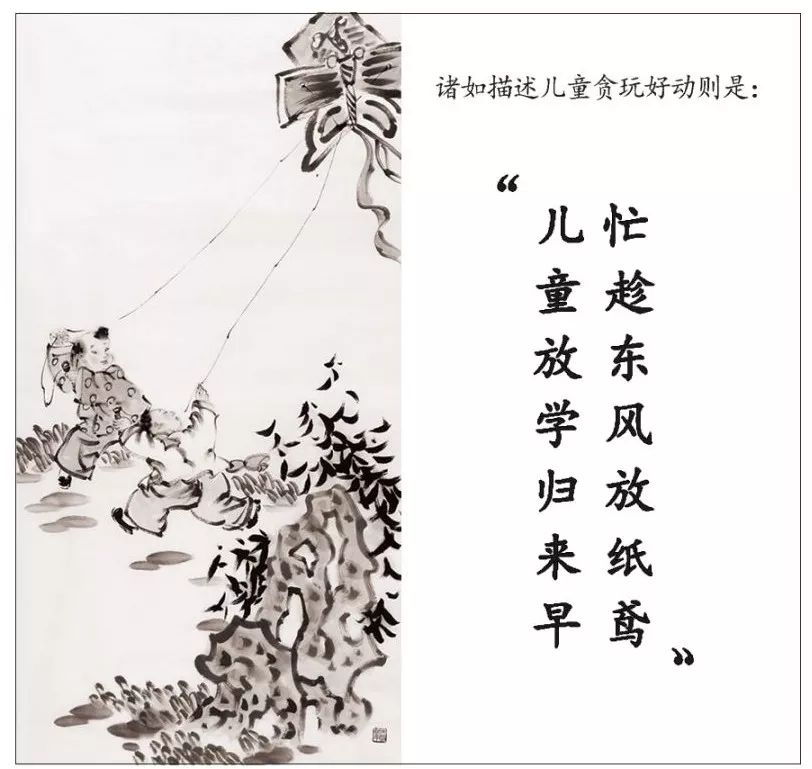 诸如描述儿童贪玩好动则是：
“儿童放学归来早
忙趁东风放纸鸢”